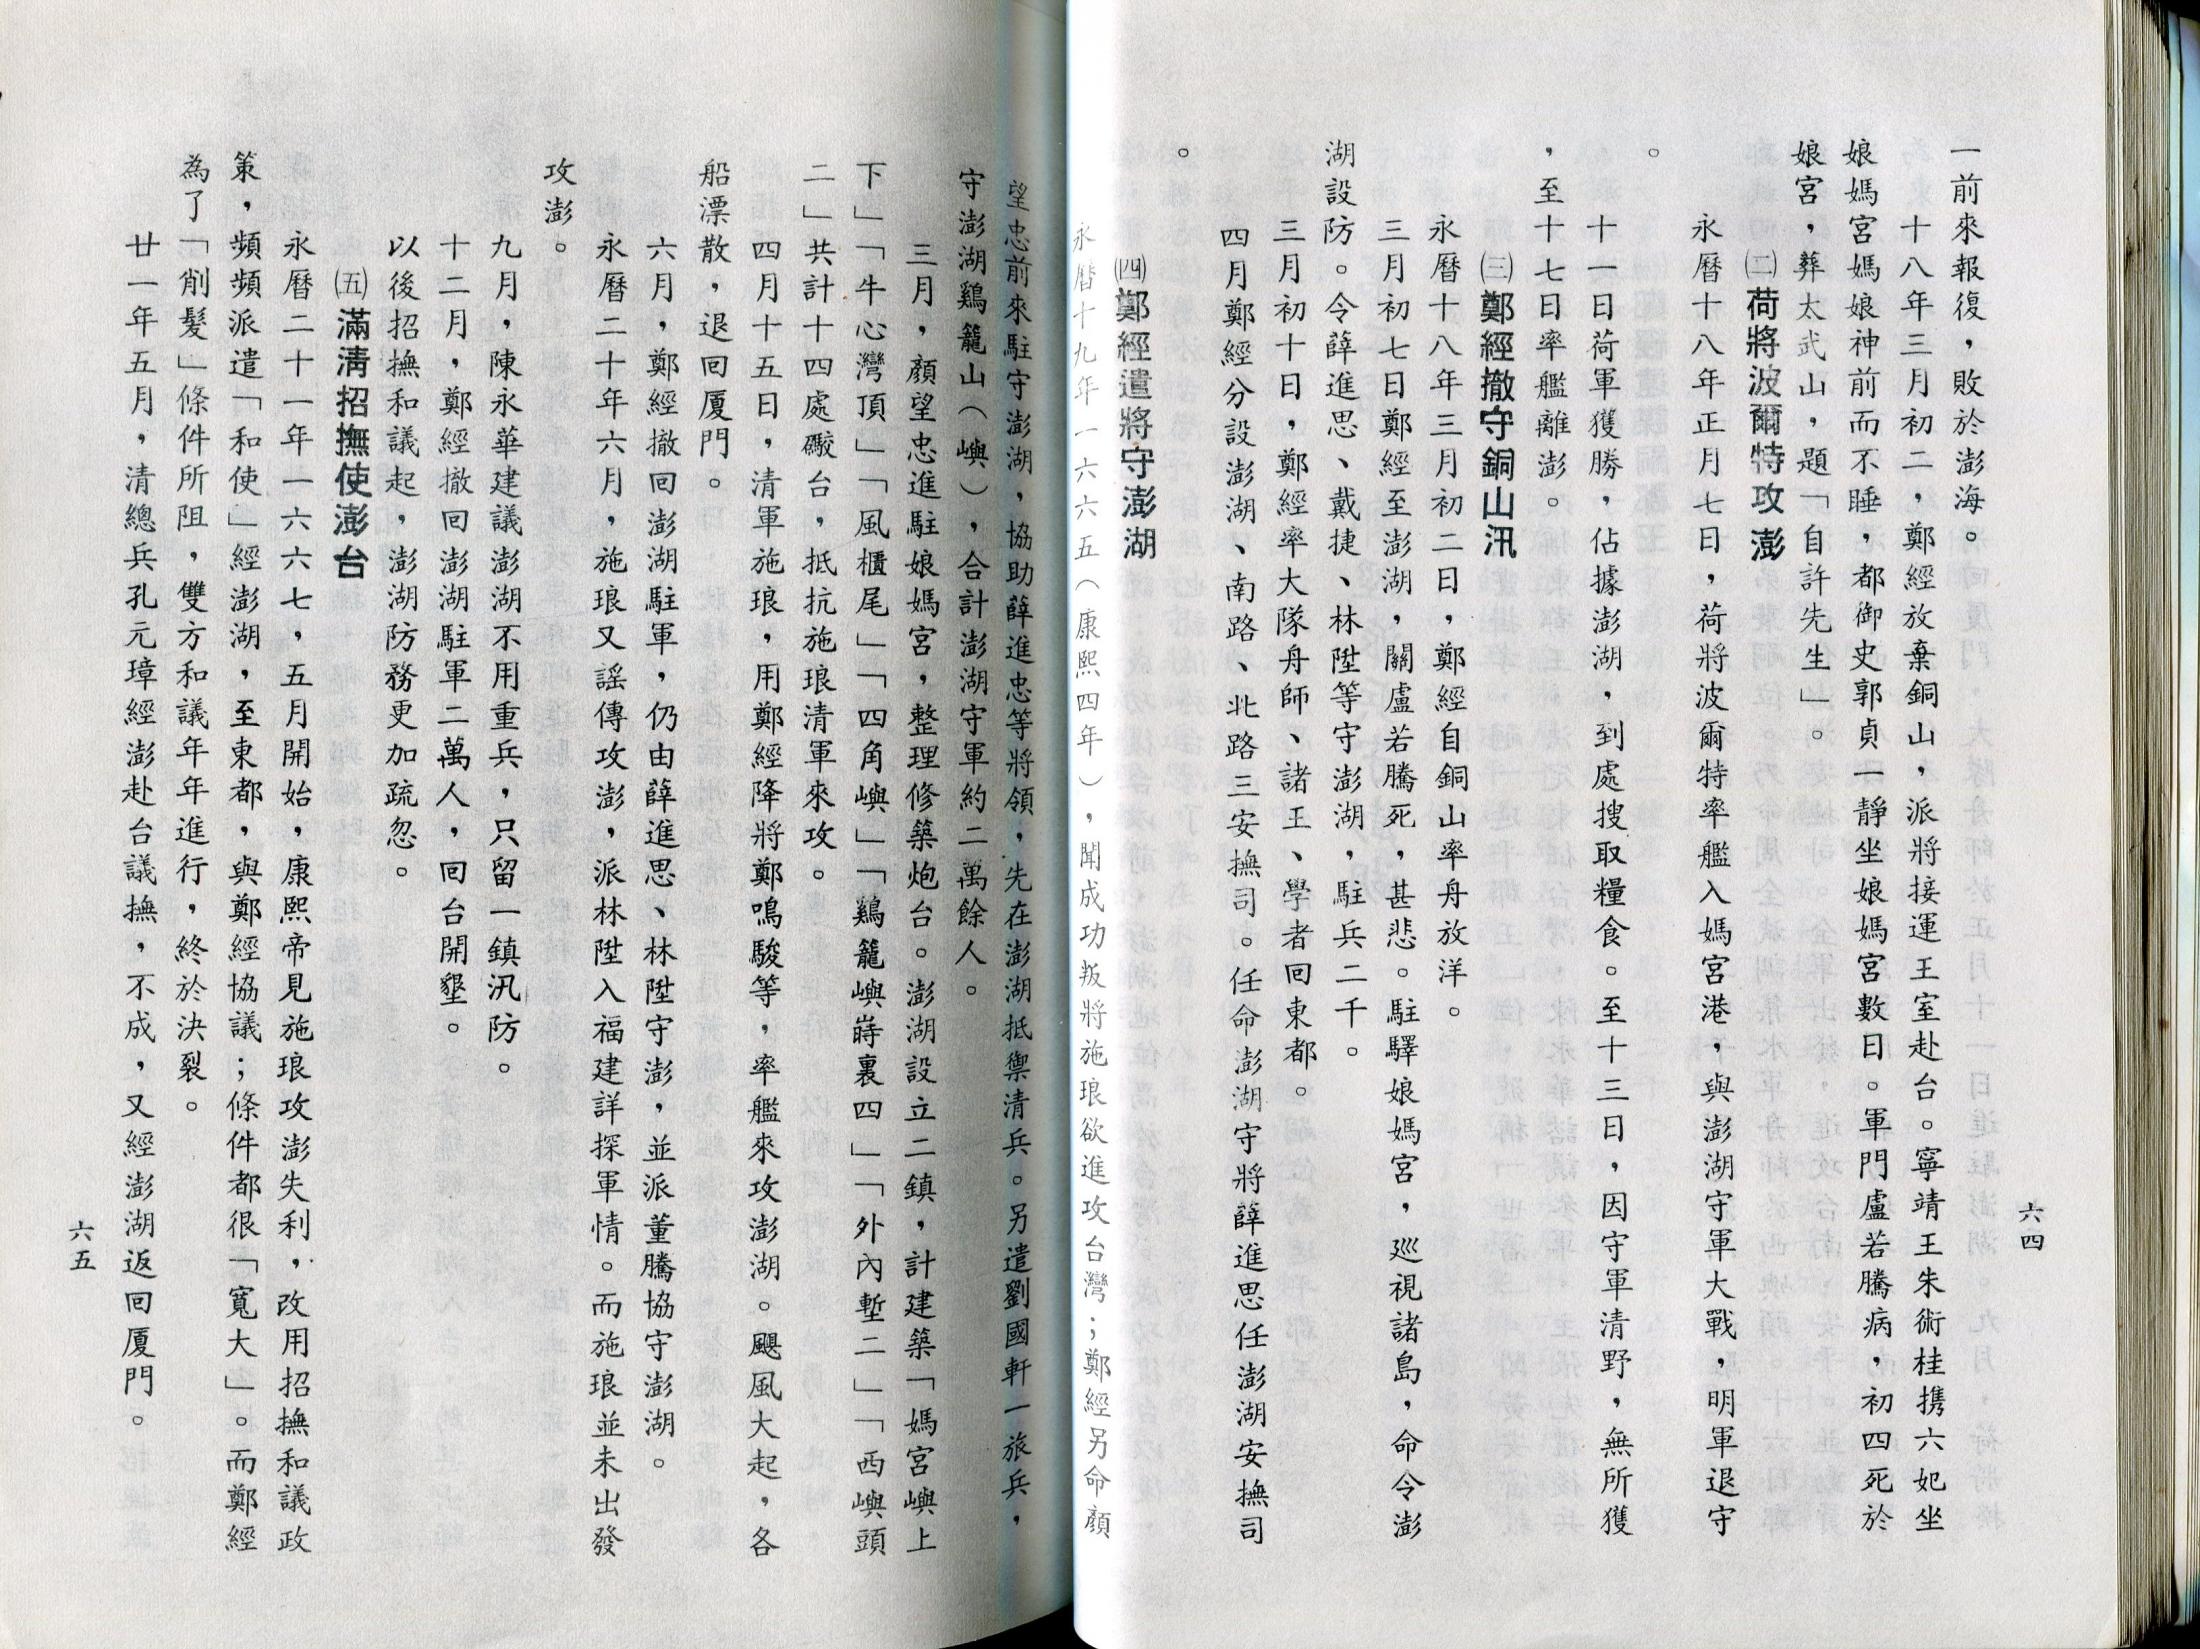 一前來報復，敗於澎海。
十八年三月初二，鄭經放棄銅山，派將接運王室赴台。寧靖王朱術桂携六妃坐
娘媽宮媽娘神前而不睡，都御史郭貞一靜坐娘媽宮數日。軍門盧若騰病，初四死於
娘宮，葬太武山，題「自許先生」。
㈡荷將波爾特攻澎
永曆十八年正月七日，荷將波爾特率艦入媽宮港，與澎湖守軍大戰，明軍退守
。
十一日荷軍獲勝，佔據澎湖，到處搜取糧食。至十三日，因守軍清野，無所獲
，至十七日率艦離澎。
㈢鄭經撤守銅山汛
永曆十八年三月初二日，鄭經自銅山率舟放洋。
三月初七日鄭經至澎湖，關盧若騰死，甚悲。駐驛娘媽宮，巡視諸島，命令澎
湖設防。令薛進思、戴捷、林陞等守澎湖，駐兵二千。
三月初十日，鄭經率大隊舟師、諸王、學者回東都。
四月鄭經分設澎湖、南路、北路三安撫司。任命澎湖守將薛進思任澎湖安撫司
。
㈣鄭經遣將守澎湖
永曆十九年一六六五（康熙四年），聞成功叛將施琅欲進攻台灣；鄭經另命顏
六四
望忠前來駐守澎湖，協助薛進忠等將領，先在澎湖抵禦清兵。另遣劉國軒一旅兵，
守澎湖鷄籠山（嶼），合計澎湖守軍約二萬餘人。
三月，顏望忠進駐娘媽宮，整理修築炮台。澎湖設立二鎮，計建築「媽宮嶼上
下」「牛心灣頂」「風櫃尾」「四角嶼」「鷄籠嶼嵵裏四」「外內塹二」「西嶼頭
二」共計十四處礮台，抵抗施琅清軍來攻。
四月十五日，清軍施琅，用鄭經降將鄭鳴駿等，率艦來攻澎湖。颶風大起，各
船漂散，退回厦門。
六月，鄭經撤回澎湖駐軍，仍由薛進思、林陞守澎，並派董騰協守澎湖。
永曆二十年六月，施琅又謠傳攻澎，派林陞入福建詳探軍情。而施琅並未出發
攻澎。
九月，陳永華建議澎湖不用重兵，只留一鎮汛防。
十二月，鄭經撤回澎湖駐軍二萬人，回台開墾。
以後招撫和議起，澎湖防務更加疏忽。
㈤滿清招撫使澎台
永曆二十一年一六六七，五月開始，康熙帝見施琅攻澎失利，改用招撫和議政
策，頻頻派遣「和使」經澎湖，至東都，與鄭經協議；條件都很「寬大」。而鄭經
為了「削髮」條件所阻，雙方和議年年進行，終於決裂。
廿一年五月，清總兵孔元璋經澎赴台議撫，不成，又經澎湖返回厦門。
六五